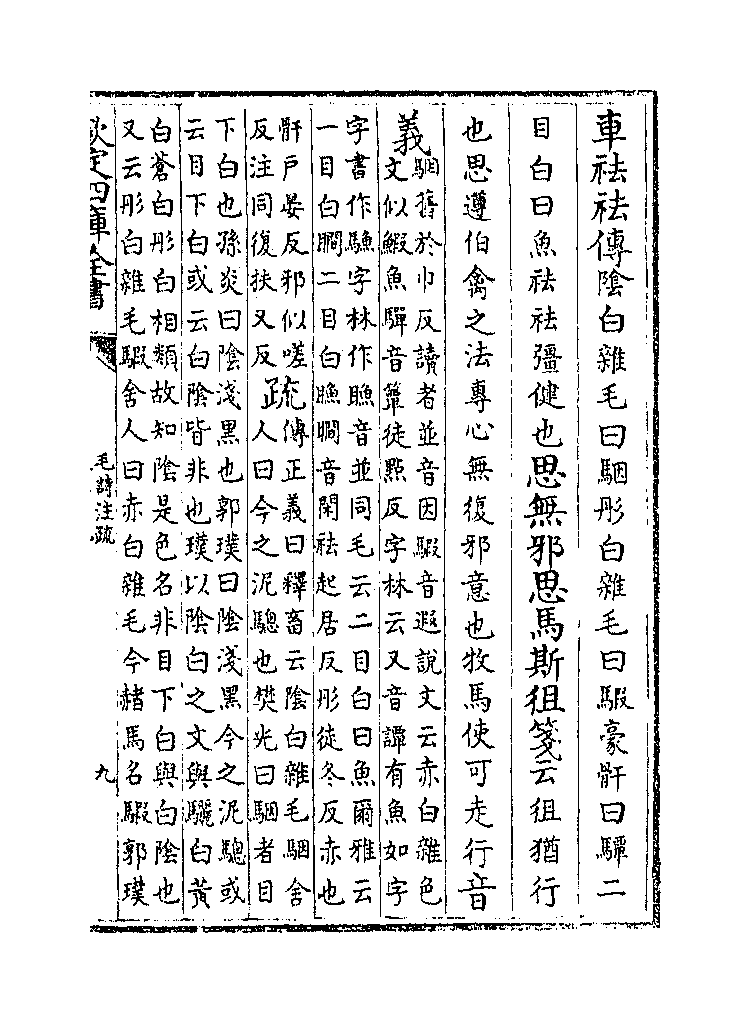 車祛祛傳陰白雜毛曰駰彤白雜毛曰騢豪骭曰驔二
目白曰魚祛祛彊健也思無邪思馬斯徂箋云徂猶行
也思遵伯禽之法專心無復邪意也牧馬使可走行音
義駰舊於巾反讀者並音因騢音遐說文云赤白雜色
文似鰕魚驔音簟徒㸃反字林云又音譚有魚如字
字書作䲣字林作䱷音並同毛云二目白曰魚爾雅云
一目白瞯二目白䱷瞯音閑祛起居反彤徒冬反赤也
骭戸晏反邪似嗟
反注同復扶又反疏傳正義曰釋畜云陰白雜毛駰舍
人曰今之泥驄也樊光曰駰者目
下白也孫炎曰陰淺黑也郭璞曰陰淺黑今之泥驄或
云目下白或云白陰皆非也璞以陰白之文與驪白黃
白蒼白彤白相類故知陰是色名非目下白與白陰也
又云彤白雜毛騢舍人曰赤白雜毛今赭馬名騢郭璞
欽定四庫全書
毛詩注疏
九